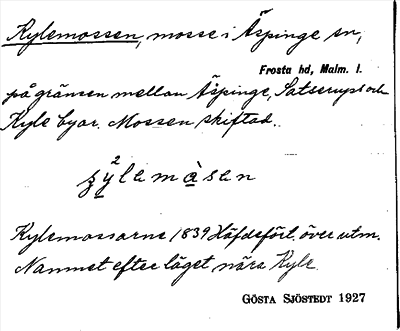 Kylemossen, mosse i Äspinge sn,
Frosta hd, Malm. l.
på gränsen mellan Äspinge, Satserups och
Kyle byar. Mossen skiftad.
2
ʂylemàsen
Kylemossarne 1839 Häfdeförl. över utm.
Namnet efter läget nära Kyle.
GÖSTA SJÖSTEDT 1927